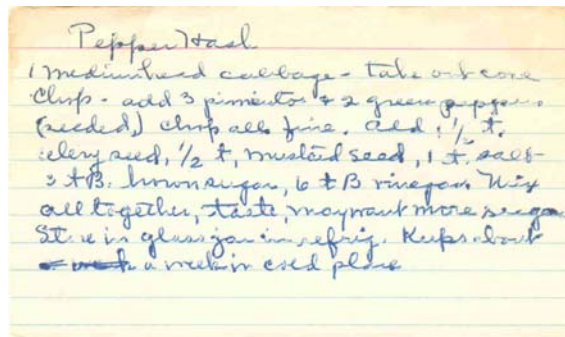 Pepper Hash
1 medium head cabbage - take out core
Chop - add 3 pimentos & 2 green peppers
(seeded,) chop all fine. Add, 1/2 t.
celery seed, 1/2 t, mustard seed, 1 t. salt
3 tB. brown sugar, 6 tB vinegar. Mix
all together, taste, may want more sugar
Store in glass jar in refrig. Keeps about
a week in cold place